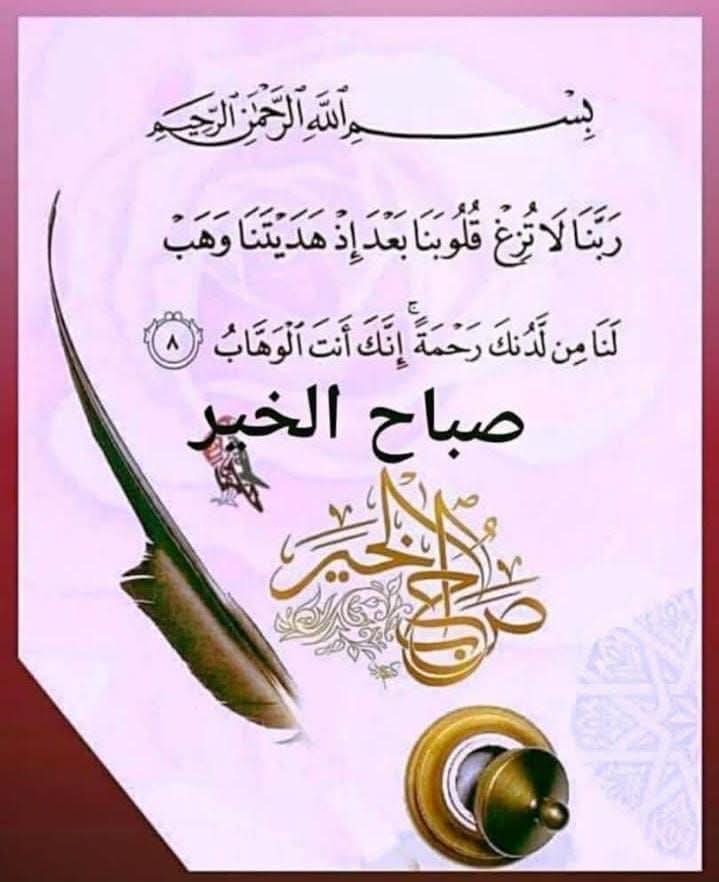 بِسْمِ ٱللَّهِ ٱلرَّحْمَٰنِ ٱلرَّحِيمِ
رَبَّنَا لَا تُزِغْ قُلُوبَنَا بَعْدَ إِذْ هَدَيْتَنَا وَهَبْ
لَنَا مِن لَّدُنكَ رَحْمَةً ۚ إِنَّكَ أَنتَ ٱلْوَهَّابُ ٨
صباح الخير
صَبَاحُ الخَيْر